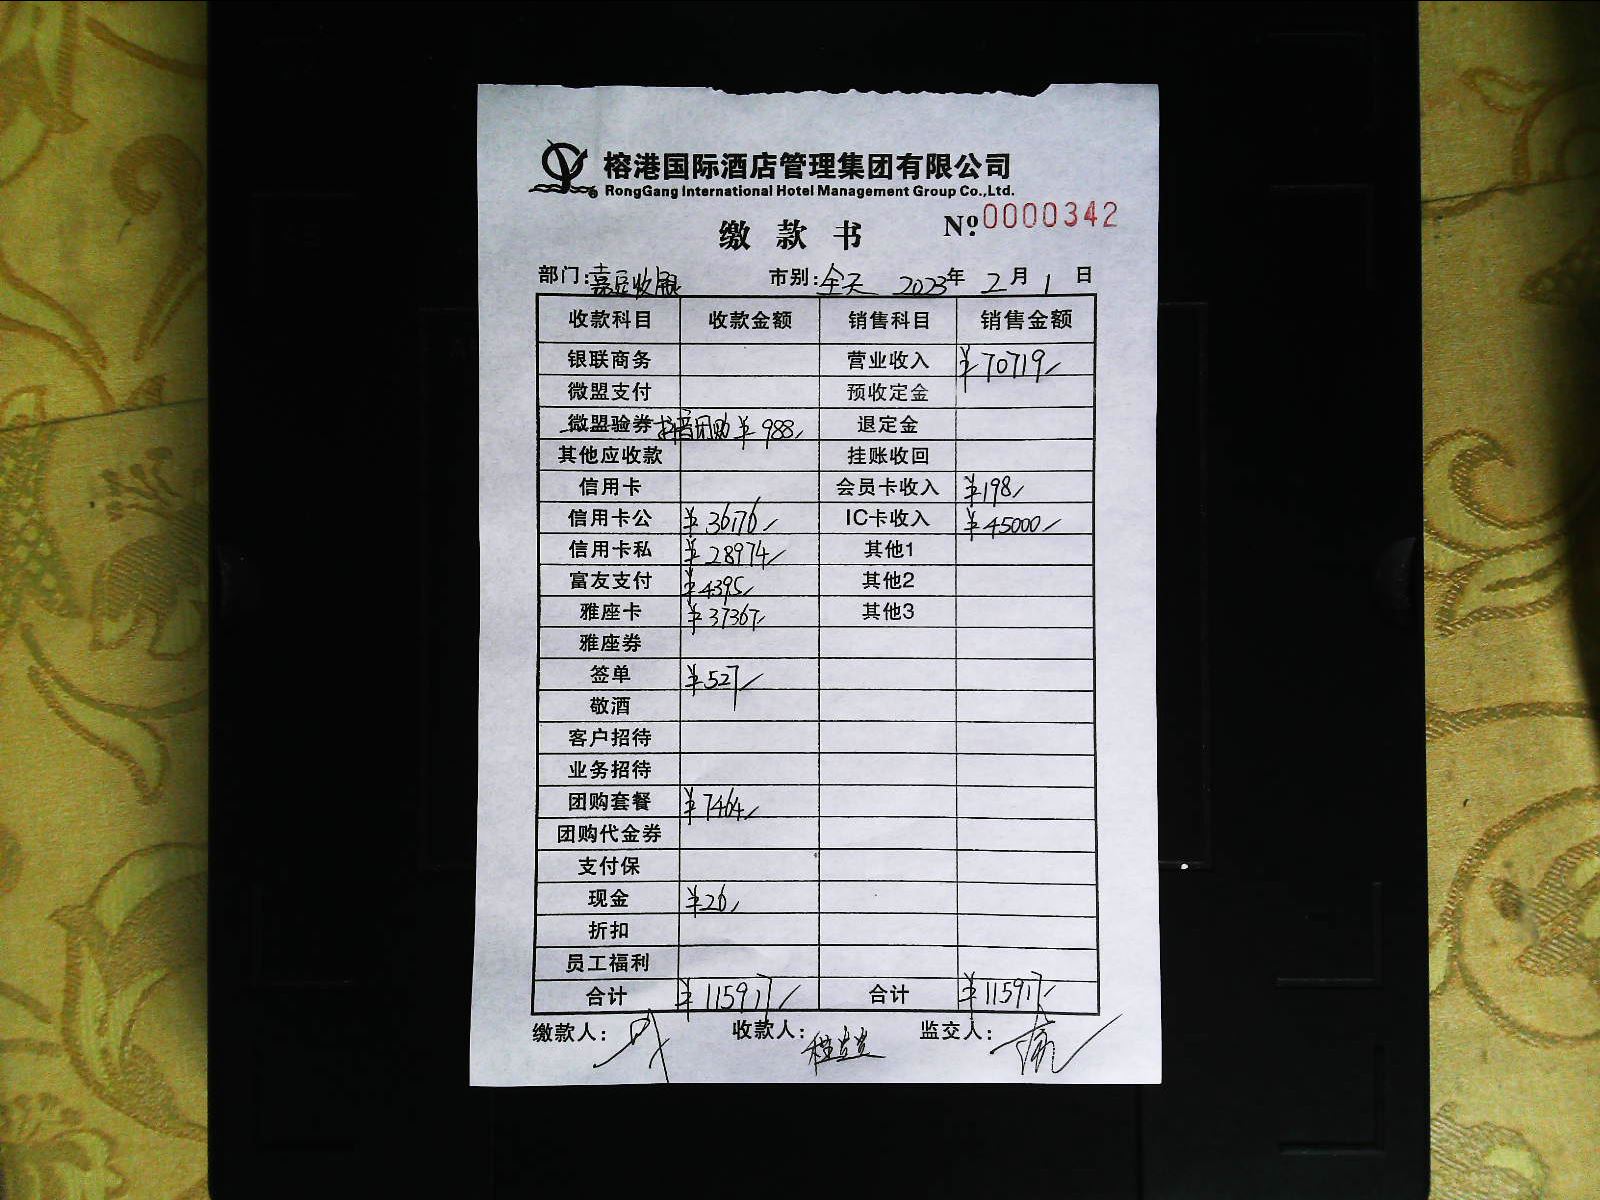 榕港国际酒店管理集团有限公司
RongGang International Hotel Management Group Co.,Ltd.
缴款书 Nº 0000342
部门: 收银 市别:全天 2023年 2月 1日
收款科目 收款金额 销售科目 销售金额
银联商务 营业收入 ¥70719
微盟支付 预收定金
微盟验券 抖音团购 ¥988 退定金
其他应收款 挂账收回
信用卡 会员卡收入 ¥198
信用卡公 ¥36176 IC卡收入 ¥45000
信用卡私 ¥28974 其他1
富友支付 ¥4395 其他2
雅座卡 ¥37367 其他3
雅座券
签单 ¥527
敬酒
客户招待
业务招待
团购套餐 ¥7464
团购代金券
支付保
现金 ¥26
折扣
员工福利
合计 ¥115917 合计 ¥115917
缴款人: 收款人: 监交人: